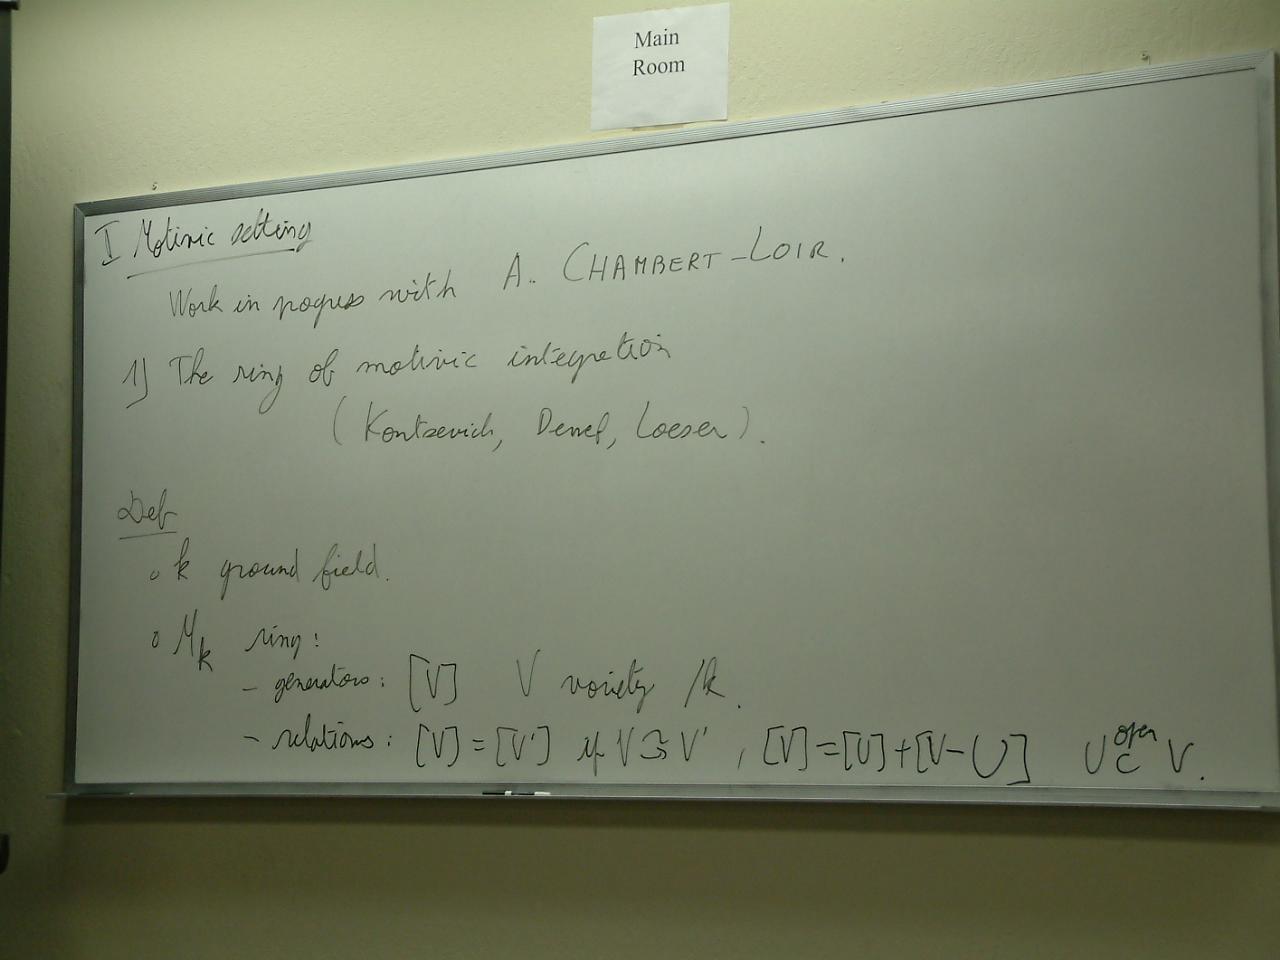 Main
Room
I Motivic setting
Work in progress with A. CHAMBERT-LOIR.
1) The ring of motivic integration
(Kontsevich, Denef, Loeser).
Def
o k ground field.
o M_k ring:
- generators: [V] V variety /k.
- relations: [V] = [V'] if V ≅ V', [V] = [U] + [V-U] U open ⊂ V.